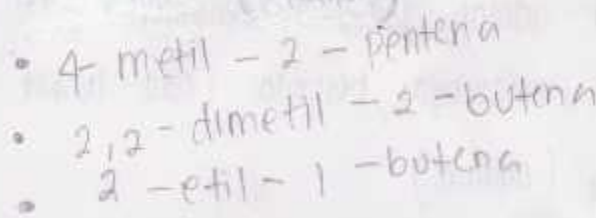 • 4 metil - 2 - pentena
• 2,2 - dimetil - 2 - butena
• 2 - etil - 1 - butena